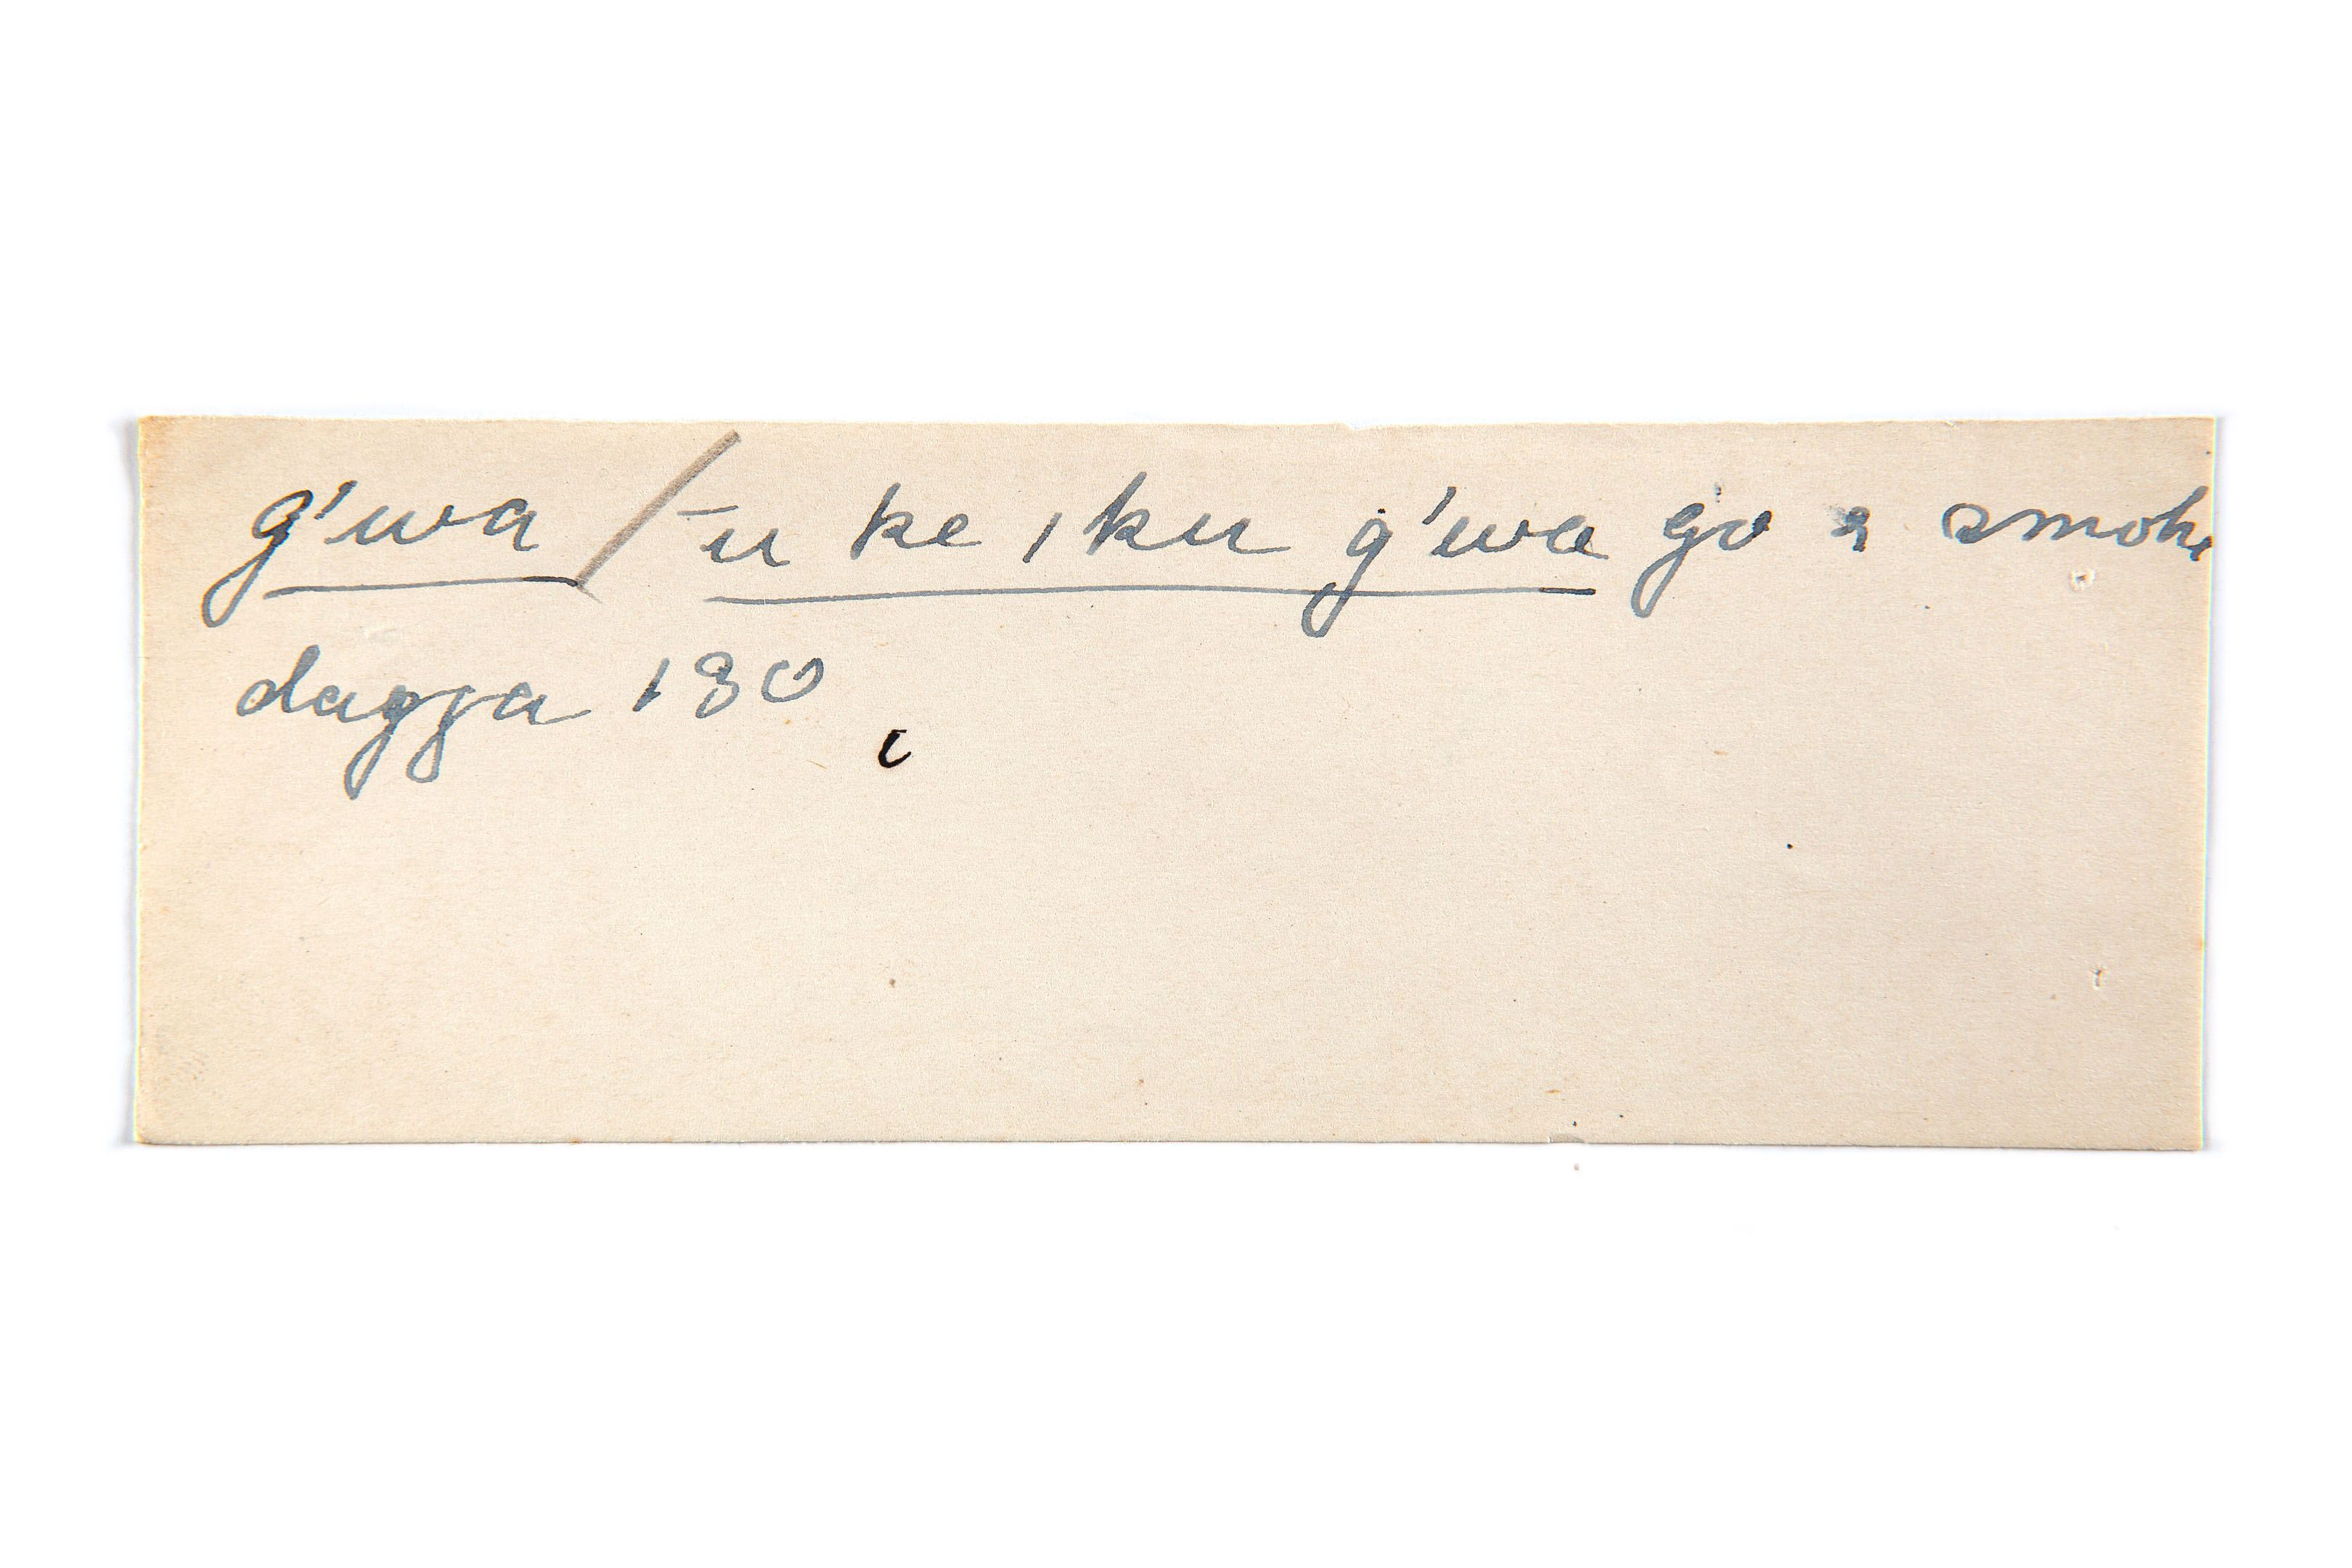 g'wa / -u ke ı ku g'wa go & smoke
dagga 130
c